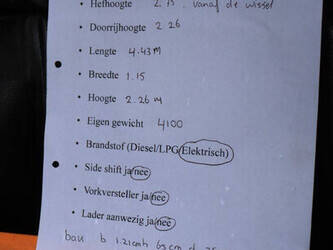 • Hefhoogte 2.75 . vanaf de wissel
• Doorrijhoogte 2.26
• Lengte 4.43M
• Breedte 1.15
• Hoogte 2.26 m
• Eigen gewicht 4100
• Brandstof (Diesel/LPG/Elektrisch)
• Side shift ja/nee
• Vorkversteller ja/nee
• Lader aanwezig ja/nee